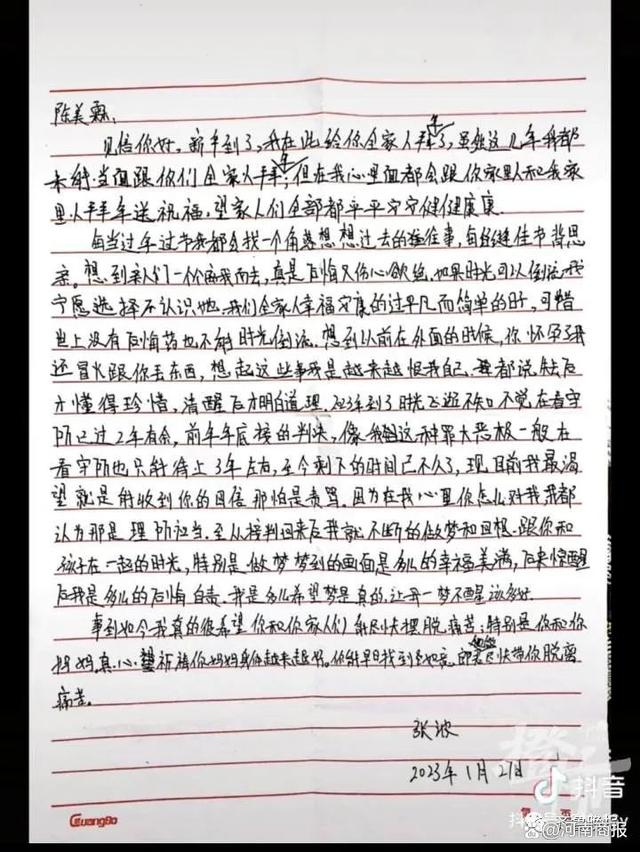 陈美霖:
见信你好。新年到了,我在此给你全家人拜年了,虽然这几年我都
未能当面跟你们全家人拜年,但在我心里面都会跟你家里人和我家
里人拜年送祝福,望家人们全部都平平安安健健康康
每当过年过节我都会找一个角落想想过去的往事,每逢佳节皆思
亲。想到亲人们一个个离我而去,真是后悔又伤心欲绝。如果时光可以倒流,我
宁愿选择不认识她,我们全家人幸福安康的过平凡而简单的日子,可惜
世上没有后悔药也不能时光倒流。想到以前在外面的时候,你怀孕了我
还冒火跟你丢东西,想起这些事我是越来越恨我自己,都说失去后
才懂得珍惜,清醒后才明白道理。2023年到了时光飞逝不知不觉在看守
所已过2年有余,前年年底接的判决,像我们这种罪大恶极一般在
看守所也只能待上3年左右,至今剩下的时间已不久了,现目前我最渴
望就是能收到你的回信那怕是责骂。因为在我心里你怎么对我我都
认为那是理所应当。至从接判回来后我就不断的做梦和回想跟你和
孩子在一起的时光,特别是做梦梦到的画面是多么的幸福美满,后来惊醒
后我是多么的后悔自责。我是多么希望梦是真的,让我一梦不醒该多好
事到如今我真的很希望你和你家人们能尽快摆脱痛苦;特别是你和你
妈妈。真心祈祷你妈妈身体越来越好,你能早日找到,尽快带你脱离
痛苦。
张波
2023年1月21日
GuangBo
第 页
抖音
抖音号:
河南商报